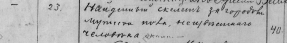 23. Найденный скелет за городом
мужского пола, неизвестного
человека 40